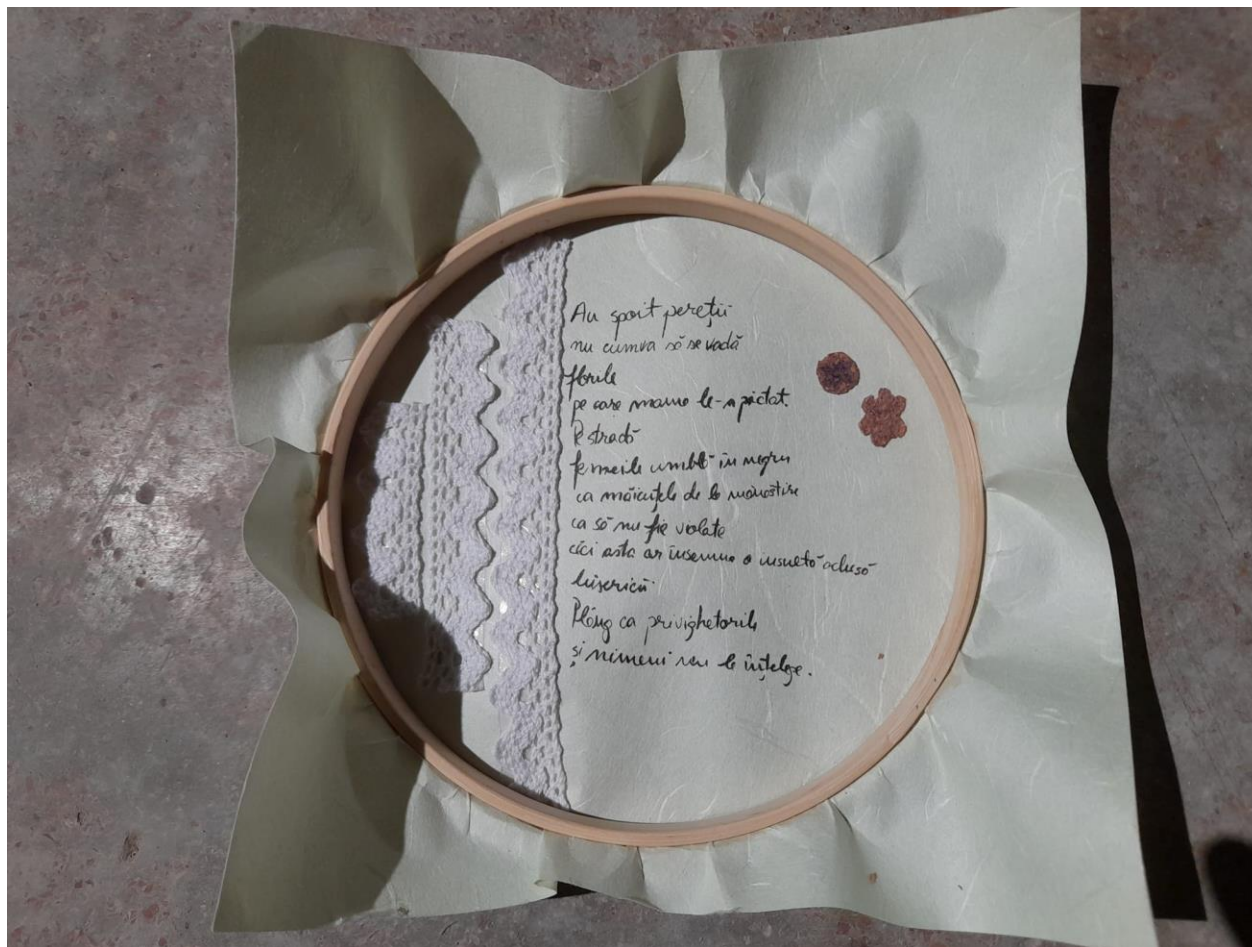 Au spoit pereții
nu cumva să se vadă
florile
pe care mama le-a pictat.
Pe stradă
femeile umblă în negru
ca măicuțele de la mănăstire
ca să nu fie violate
căci asta ar însemna o insultă adusă
bisericii.
Plâng ca privighetorile
și nimeni nu le înțelege.